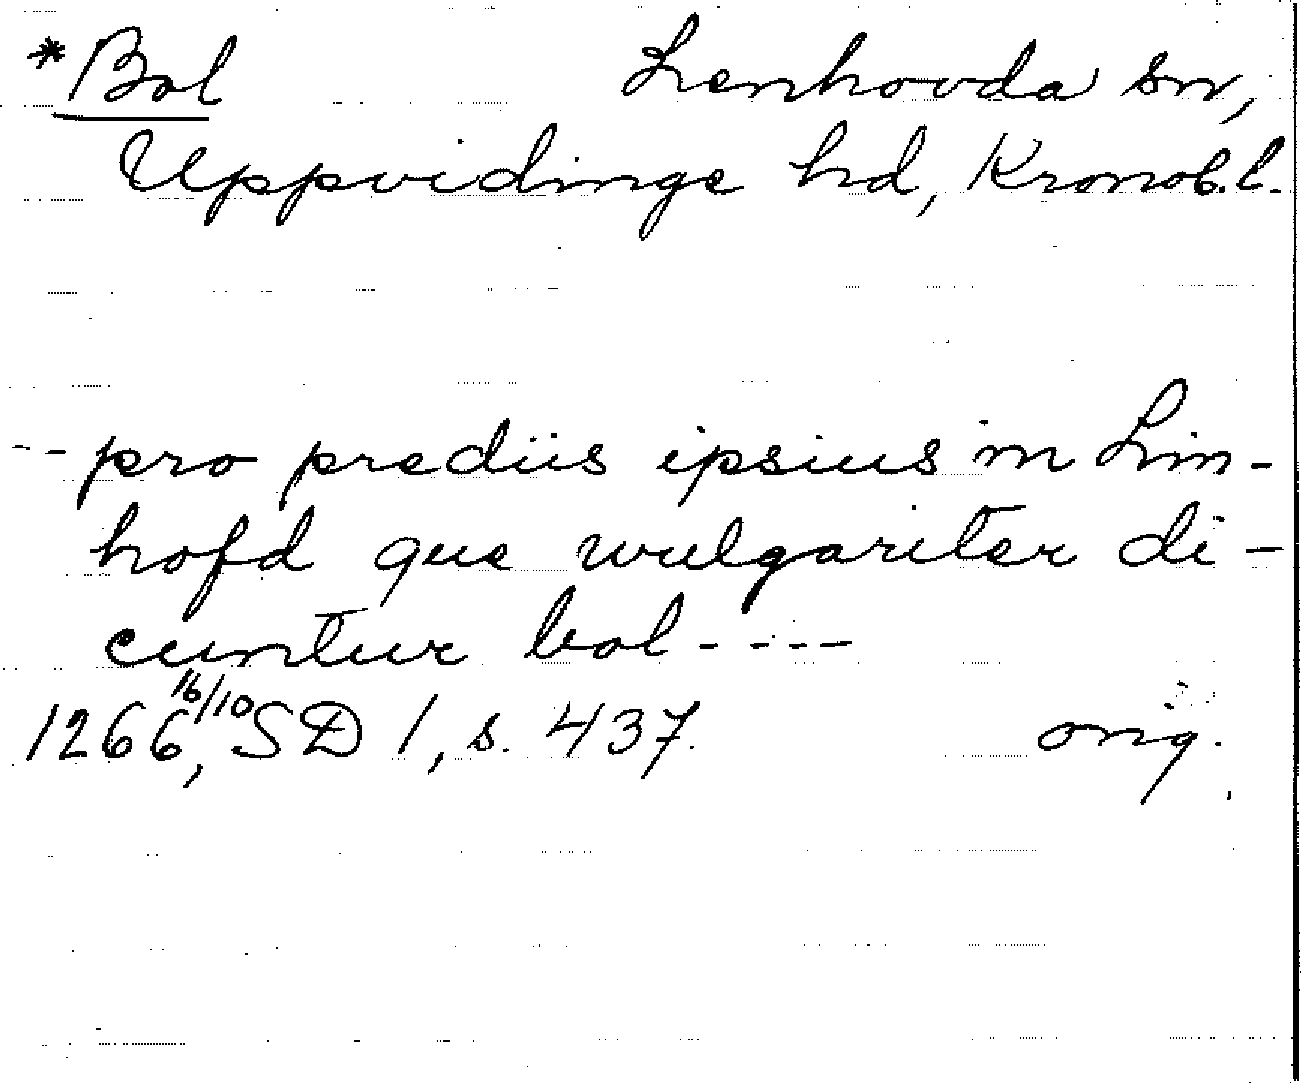 *Bol Lenhovda sn,
Uppvidinge hd, Kronob. l.
- - pro prediis ipsius in Lin-
hofd que wulgariter di-
cuntur bol - - - -
1266 16/10, SD 1, s. 437. orig.